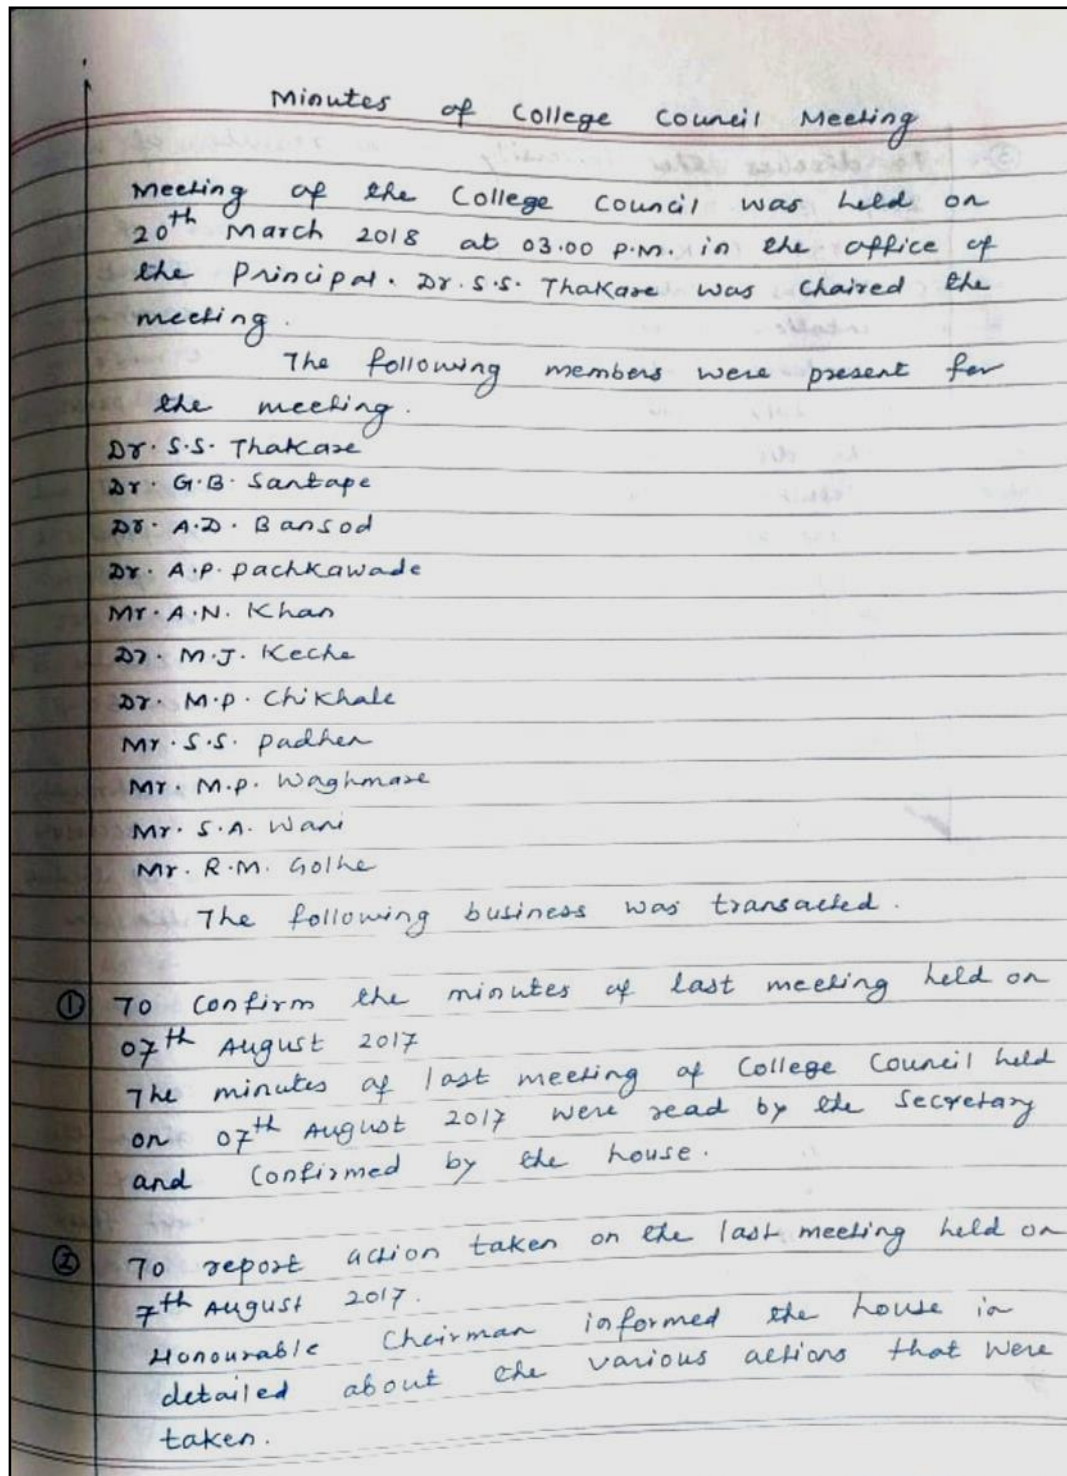 Minutes of College Council Meeting
Meeting of the College Council was held on
20th March 2018 at 03.00 P.M. in the office of
the Principal. Dr. S.S. Thakare was Chaired the
meeting.
The following members were present for
the meeting.
Dr. S.S. Thakare
Dr. G.B. Santape
Dr. A.D. Bansod
Dr. A.P. Pachkawade
Mr. A.N. Khan
Dr. M.J. Keche
Dr. M.P. Chikhale
Mr. S.S. Padhen
Mr. M.P. Waghmare
Mr. S.A. Wani
Mr. R.M. Golhe
The following business was transacted.
① To Confirm the minutes of last meeting held on
07th August 2017
The minutes of last meeting of College Council held
on 07th August 2017 were read by the Secretary
and Confirmed by the house.
② To report action taken on the last meeting held on
7th August 2017.
Honourable Chairman informed the house in
detailed about the various actions that were
taken.